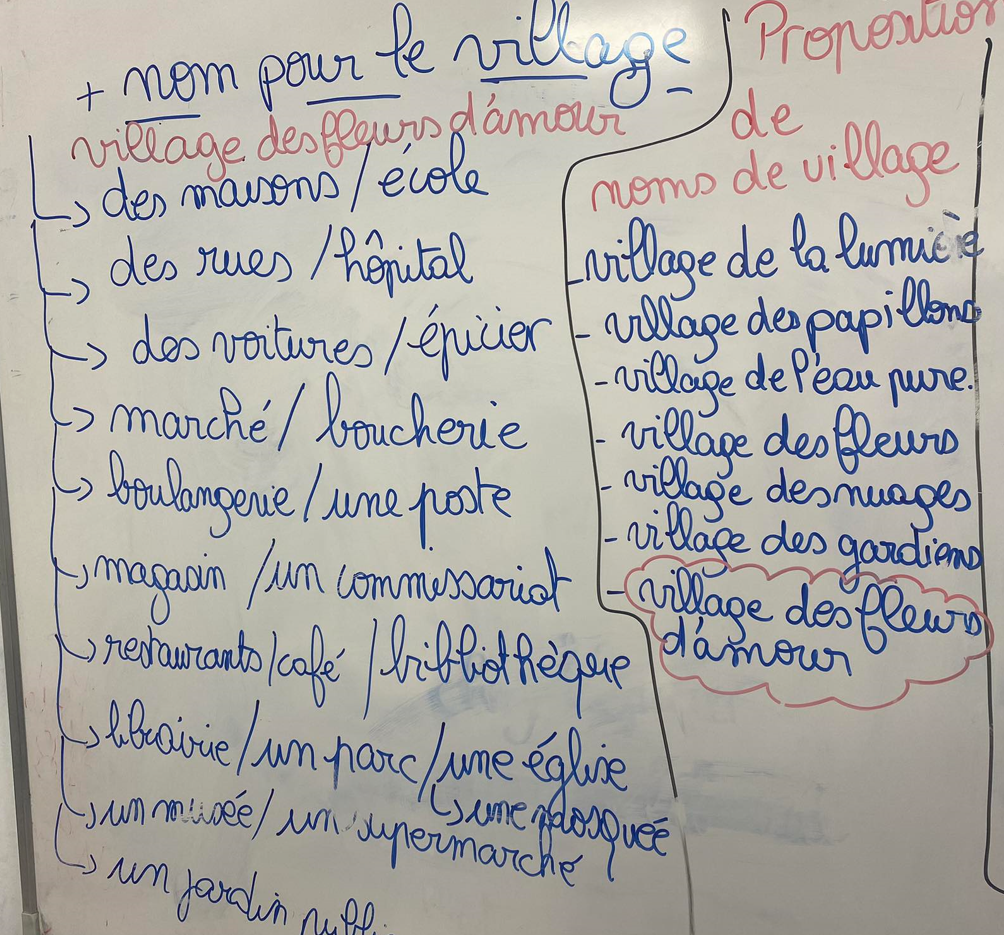 + nom pour le village
village des fleurs d'amour
des maisons / école
des rues / hôpital
des voitures / épicier
marché / boucherie
boulangerie / une poste
magasin / un commissariat
restaurants / café / bibliothèque
librairie / un parc / une église
une mosqueé
un musée / un supermarché
un jardin
Proposition
de
noms de village
- village de la lumière
- village des papillons
- village de l'eau pure.
- village des fleurs
- village des nuages
- village des gardiens
- village des fleurs
d'amour